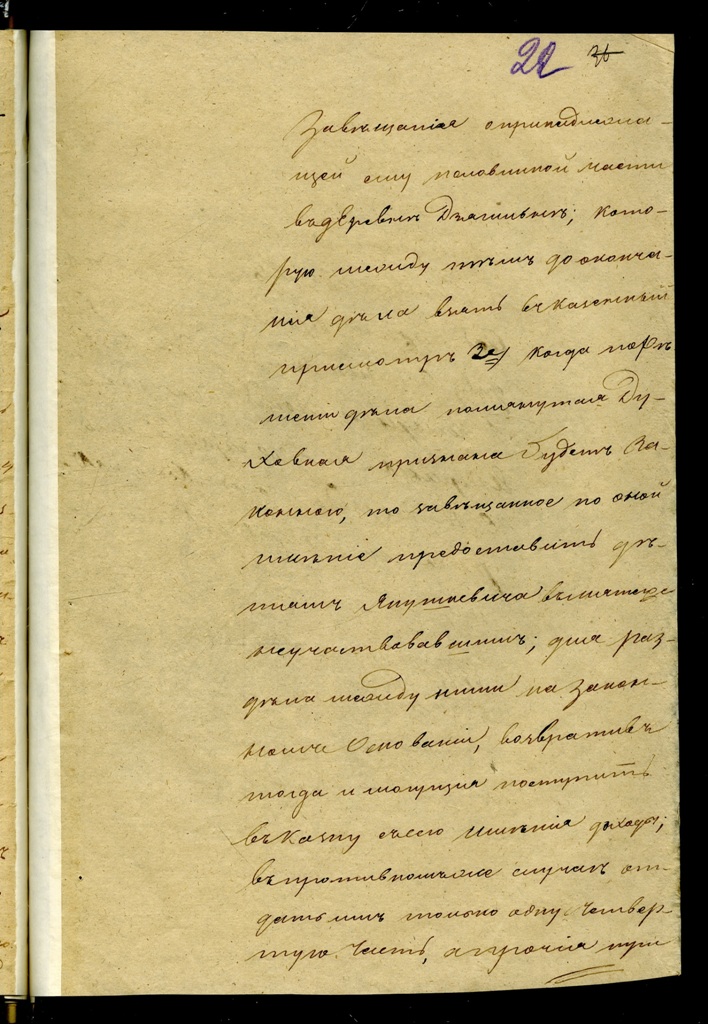 22 36
Завѣщанія о принадлежа-
щей ему половинной части
въ деревнѣ Дзягильнѣ; кото-
рую между тѣмъ до оконча-
нія дѣла взять въ казенный
присмотръ 2е) когда по рѣ
шеніи дѣла помянутая Ду-
ховная признана будетъ За-
конною, то завѣщанное по оной
имѣніе предоставить дѣ-
тямъ Янушкевича въ мятеже
неучаствовавшимъ; для раз-
дѣла между ними на закон-
номъ Основаніи, возвративъ
тогда и могущія поступить
въ Казну съ сего имѣнія доходы;
въ противномъ же случаѣ от-
дать имъ только одну Четвер-
тую Часть, а прочія три